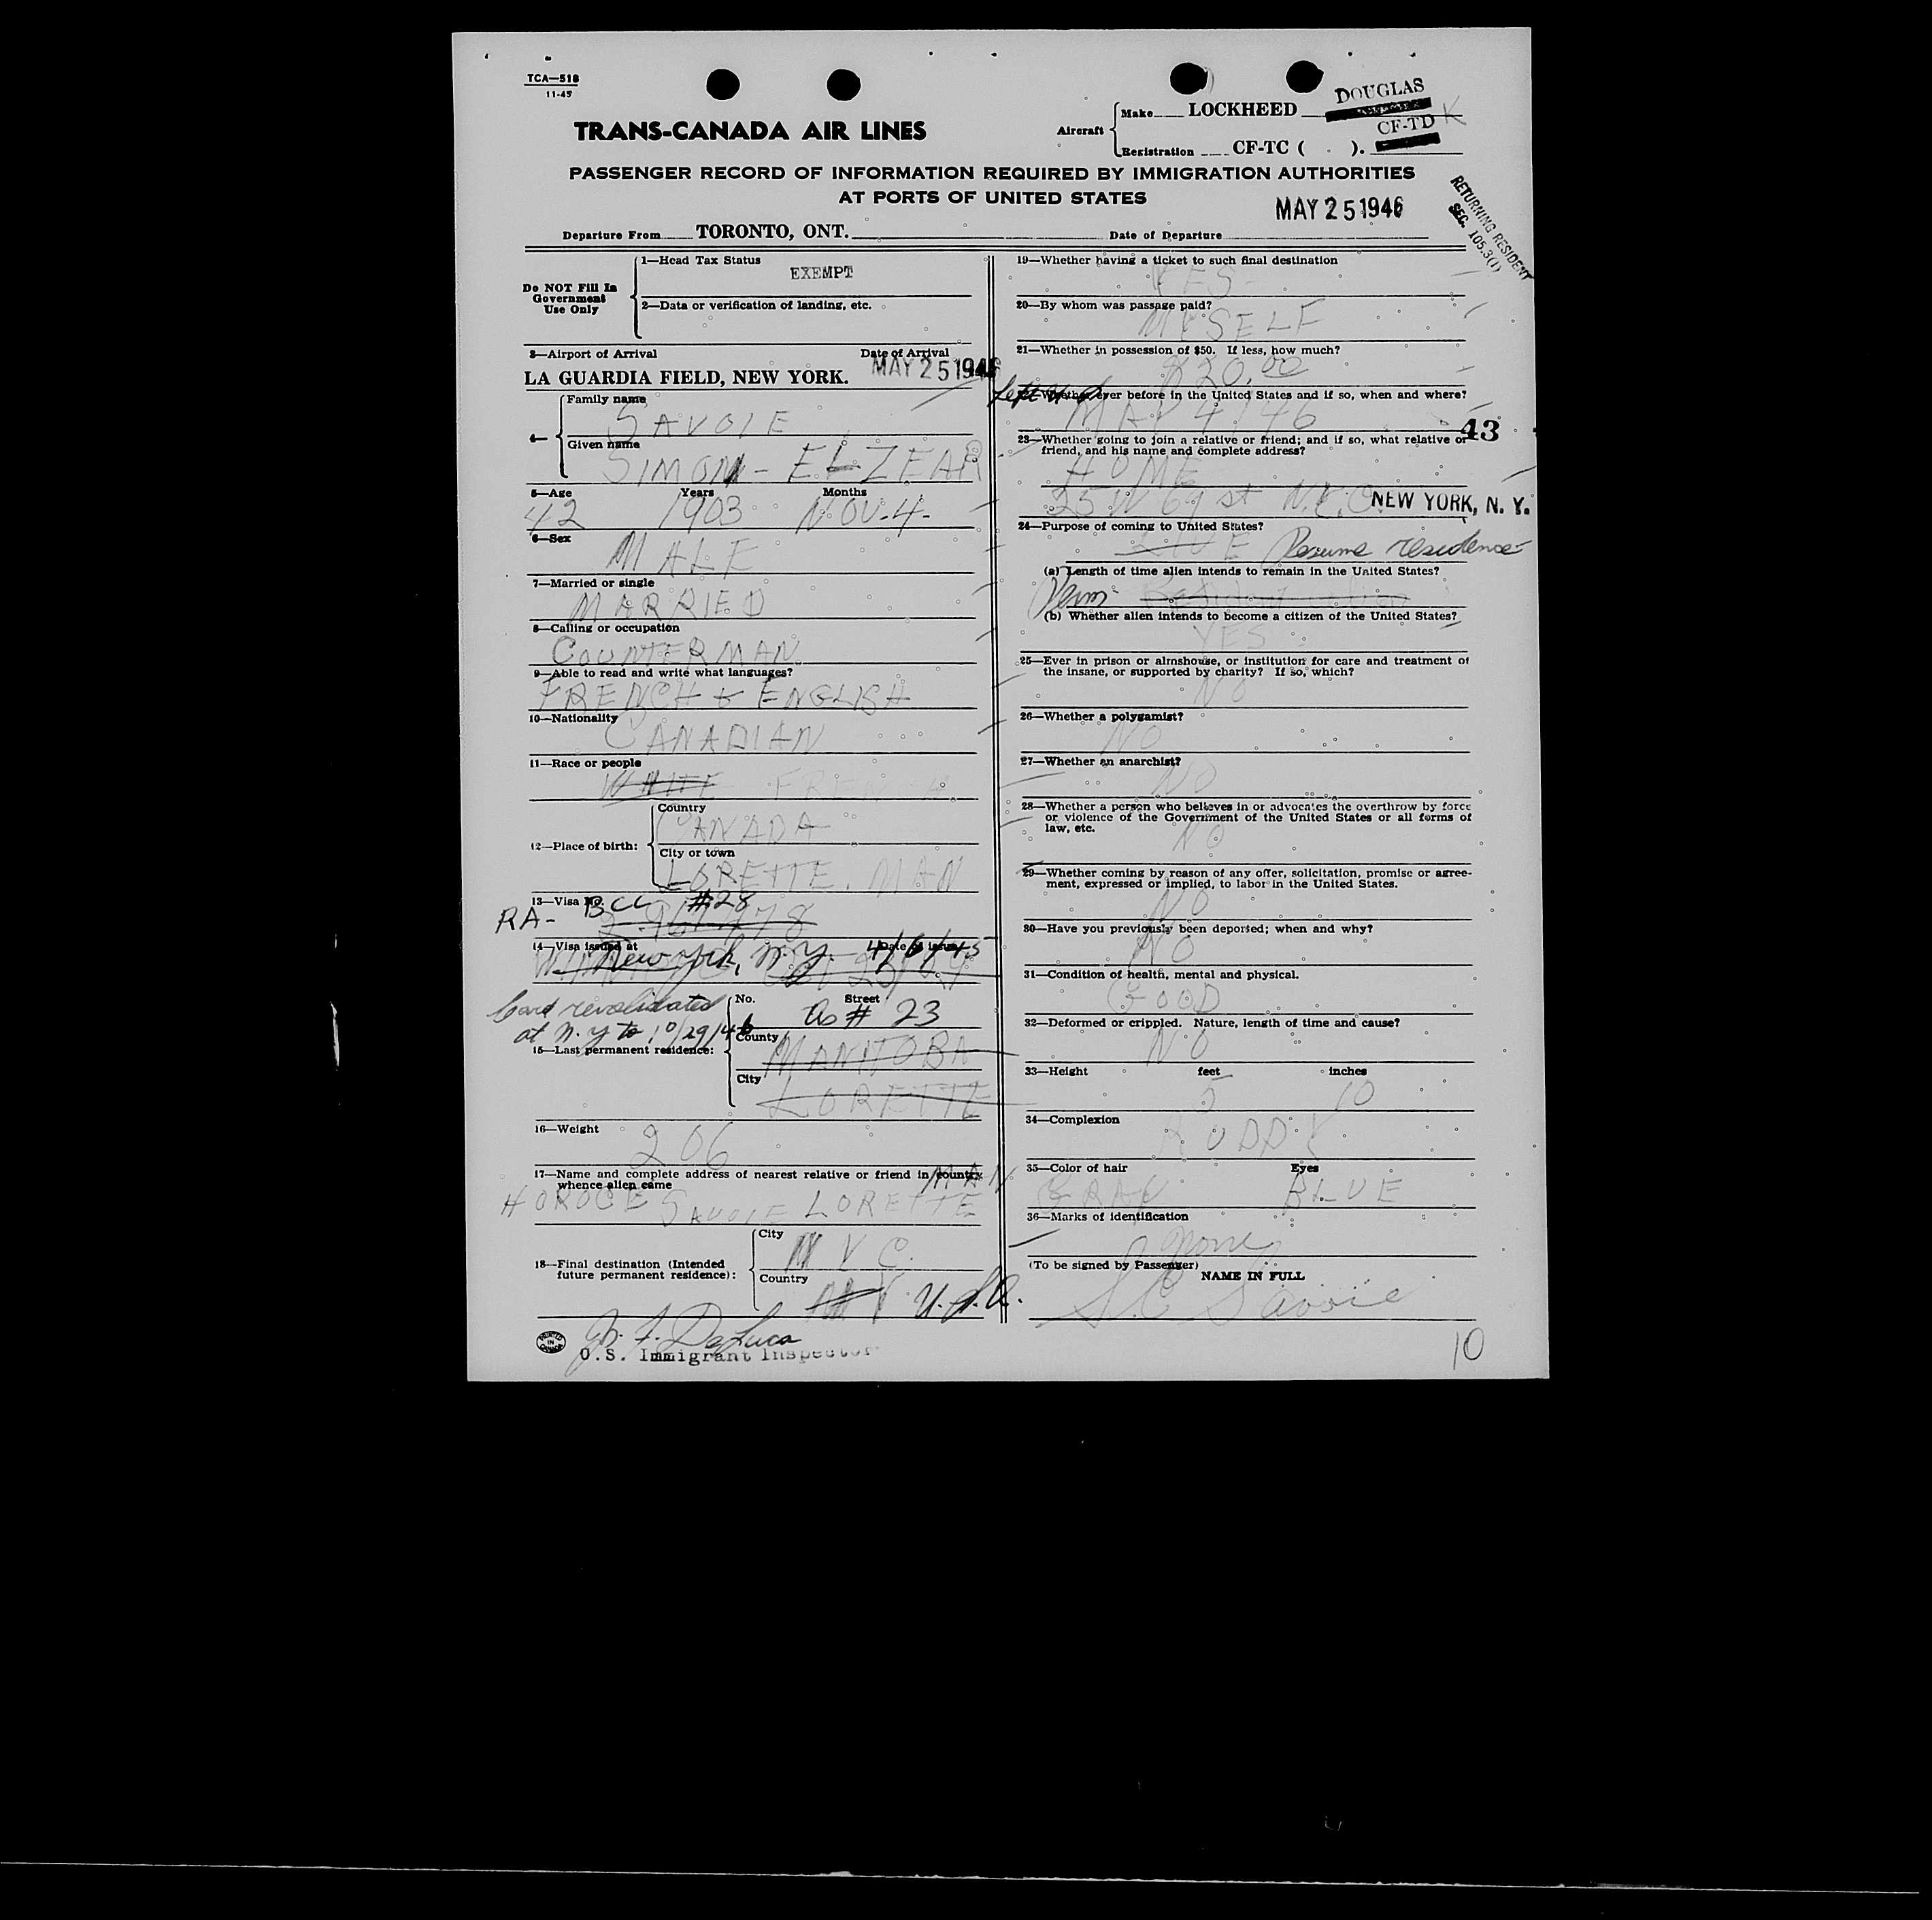 TCA—518
11-45
TRANS-CANADA AIR LINES
Aircraft
Make LOCKHEED DOUGLAS
Registration CF-TC ( ). CF-TD K
PASSENGER RECORD OF INFORMATION REQUIRED BY IMMIGRATION AUTHORITIES
AT PORTS OF UNITED STATES
MAY 25 1946
RETURNING RESIDENT
SEC. 105.3(1)
Departure From TORONTO, ONT. Date of Departure
Do NOT Fill In
Government
Use Only
1—Head Tax Status
EXEMPT
2—Data or verification of landing, etc.
3—Airport of Arrival Date of Arrival
LA GUARDIA FIELD, NEW YORK. MAY 25 1946
4—
Family name
SAVOIE
Given name
SIMON - ELZEAR
5—Age Years Months
42 1903 NOV-4-
6—Sex
MALE
7—Married or single
MARRIED
8—Calling or occupation
COUNTERMAN
9—Able to read and write what languages?
FRENCH & ENGLISH
10—Nationality
CANADIAN
11—Race or people
WHITE FRENCH
12—Place of birth:
Country
CANADA
City or town
LORETTE. MAN
13—Visa No.
RA- BCC #28
14—Visa issued at Date of issue
New York, N.Y. 4/6/45
Card revalidated
at N.Y to 10/29/46
15—Last permanent residence:
No. Street
As # 23
County
MANITOBA
City
LORETTE
16—Weight
206
17—Name and complete address of nearest relative or friend in country
whence alien came
MAN
HOROCE SAVOIE LORETTE
18—Final destination (Intended
future permanent residence):
City
N Y C.
Country
N Y. U.S.A.
J. F. DeLuca
U.S. Immigrant Inspector
PRINTED IN CANADA
19—Whether having a ticket to such final destination
YES-
20—By whom was passage paid?
MYSELF
21—Whether in possession of $50. If less, how much?
$20.00
Left U S
22—Whether ever before in the United States and if so, when and where?
MAY 4/46
43
23—Whether going to join a relative or friend; and if so, what relative or
friend, and his name and complete address?
HOME
25 W 69 st N.Y.C. NEW YORK, N. Y.
24—Purpose of coming to United States?
LIVE Resume residence
(a) Length of time alien intends to remain in the United States?
Perm.
(b) Whether alien intends to become a citizen of the United States?
YES
25—Ever in prison or almshouse, or institution for care and treatment of
the insane, or supported by charity? If so, which?
NO
26—Whether a polygamist?
NO
27—Whether an anarchist?
NO
28—Whether a person who believes in or advocates the overthrow by force
or violence of the Government of the United States or all forms of
law, etc.
NO
29—Whether coming by reason of any offer, solicitation, promise or agree-
ment, expressed or implied, to labor in the United States.
NO
30—Have you previously been deported; when and why?
NO
31—Condition of health, mental and physical.
GOOD
32—Deformed or crippled. Nature, length of time and cause?
NO
33—Height feet inches
5 10
34—Complexion
RUDDY
35—Color of hair Eyes
GRAY BLUE
36—Marks of identification
None
(To be signed by Passenger)
NAME IN FULL
S.E Savoie
10